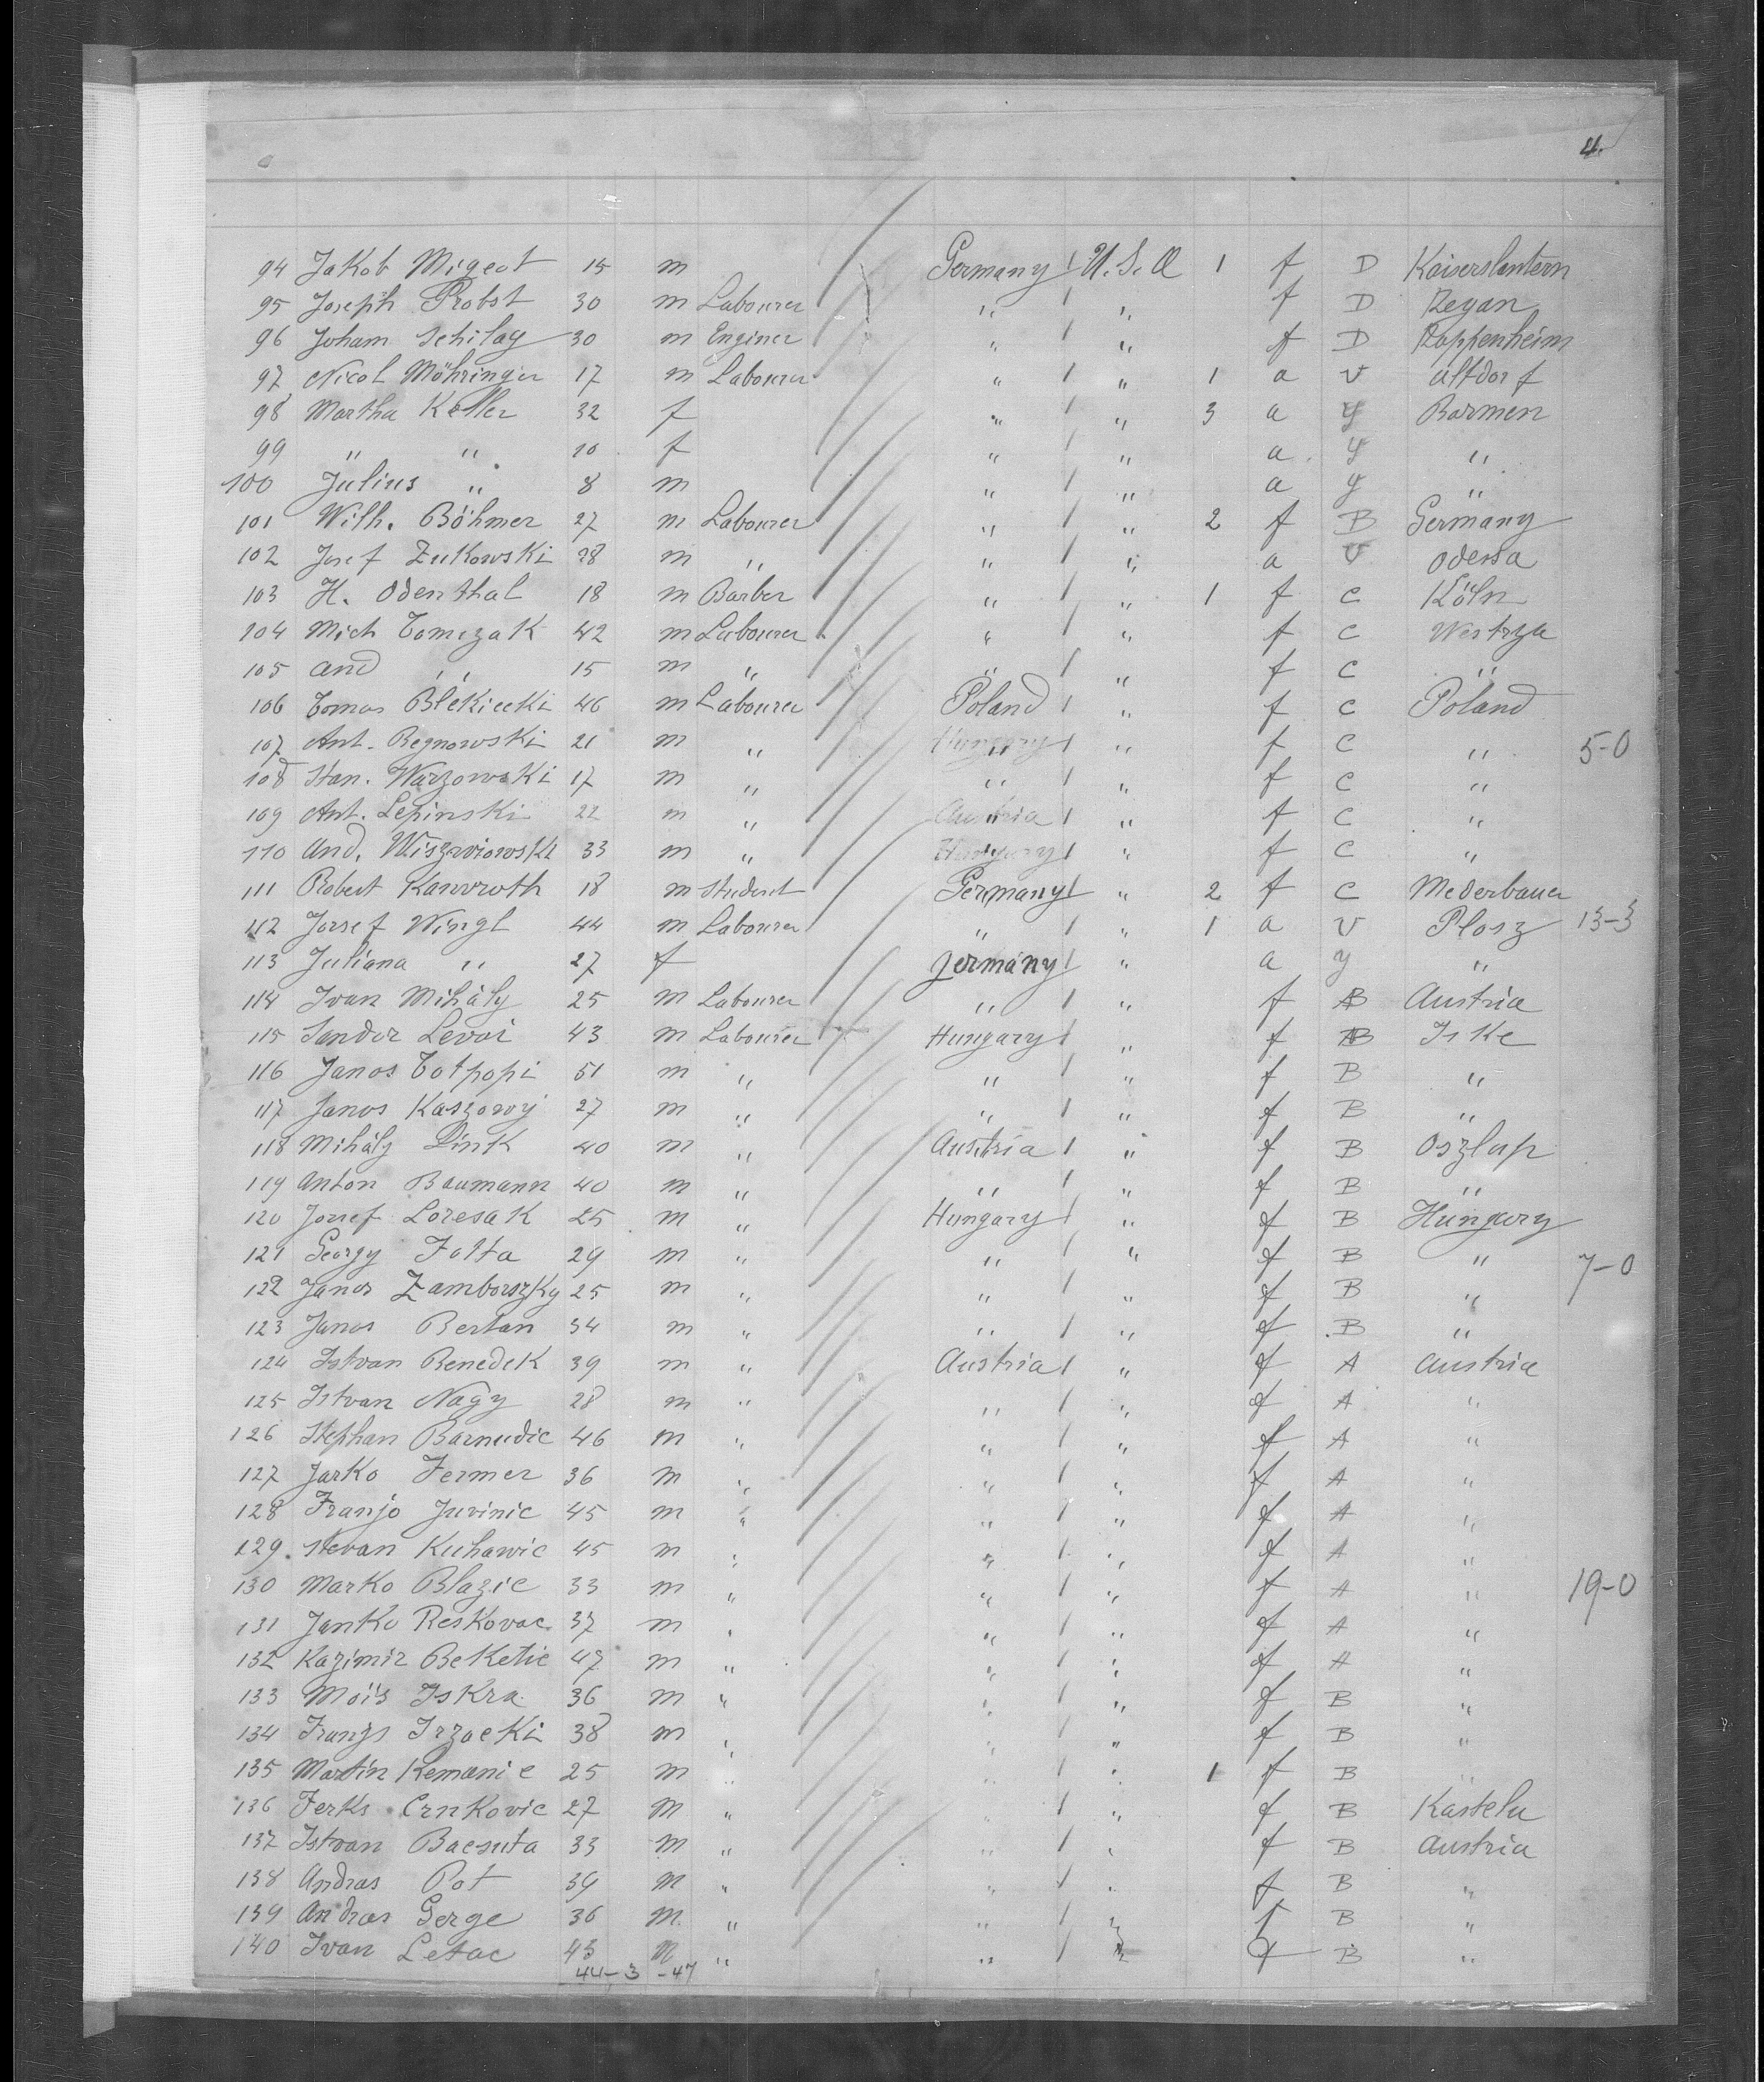 4.
94 Jakob Migeot 15 m Germany / U.S.A 1 f D Kaiserslautern
95 Joseph Probst 30 m Labourer " / " f D Regan
96 Joham Schilag 30 m Enginer " / " f D Pappenheim
97 Nicol Möhringer 17 m Labourer " / " 1 a v Altdorf
98 Martha Keller 32 f " / " 3 a y Barmen
99 " " 10 f " / " a y "
100 Julius " 8 m " / " a y "
101 Wilh. Böhmer 27 m Labourer " / " 2 f B Germany
102 Josef Zukowski 28 m " " / " a v Odessa
103 H. Odenthal 18 m Barber " / " 1 f C Köln
104 Mich Tomczak 42 m Labourer " / " f C Westrza
105 And " 15 m " " / " f C "
106 Tomas Blékiecki 46 m Labourer Poland / " f C Poland
107 Ant. Regnowski 21 m " " / " f C " 5-0
108 Stan. Warzowski 17 m " " / " f C "
109 Ant. Lepinski 22 m " " / " f C "
110 And. Wiszwiowski 33 m " " / " f C "
111 Robert Kanvroth 18 m Student Germany / " 2 f C Mederbauer
112 Jossef Wingl 44 m Labourer " / " 1 a v Plosz 13-3
113 Juliana " 27 f Jermany / " a y "
114 Ivan Mihály 25 m Labourer " / " f B Austria
115 Sandor Levai 43 m Labourer Hungary / " f B Iske
116 Janos Totpopi 51 m " " / " f B "
117 Janos Kaszowy 27 m " " / " f B "
118 Mihály Pink 40 m " Austria / " f B Oszlap
119 Anton Baumann 40 m " " / " f B "
120 Jossef Loresak 25 m " Hungary / " f B Hungary
121 Georgy Jatta 29 m " " / " f B " 7-0
122 Janos Zamborszky 25 m " " / " f B "
123 Janos Bertan 34 m " " / " f B "
124 Istvan Benedek 39 m " Austria / " f A Austria
125 Istvan Nagy 28 m " " / " f A "
126 Stephan Barnudic 46 m " " / " f A "
127 Jarko Fermer 36 m " " / " f A "
128 Franjo Juvinic 45 m " " / " f A "
129 Stevan Kuhawic 45 m " " / " f A "
130 Marko Blazic 33 m " " / " f A " 19-0
131 Janko Reskovac 37 m " " / " f A "
132 Kazimir Beketic 47 m " " / " f A "
133 Mois Iskra 36 m " " / " f B "
134 Franjs Irzacki 38 m " " / " f B "
135 Martin Kemanic 25 m " " / " 1 f B "
136 Ferks Crnkovic 27 m " " / " f B Kastelu
137 Istvan Bacsuta 33 m " " / " f B Austria
138 Andras Pot 39 m " " / " f B "
139 Andras Gerge 36 m " " / " f B "
140 Ivan Letac 43 m " " / " f B "
44-3 -47